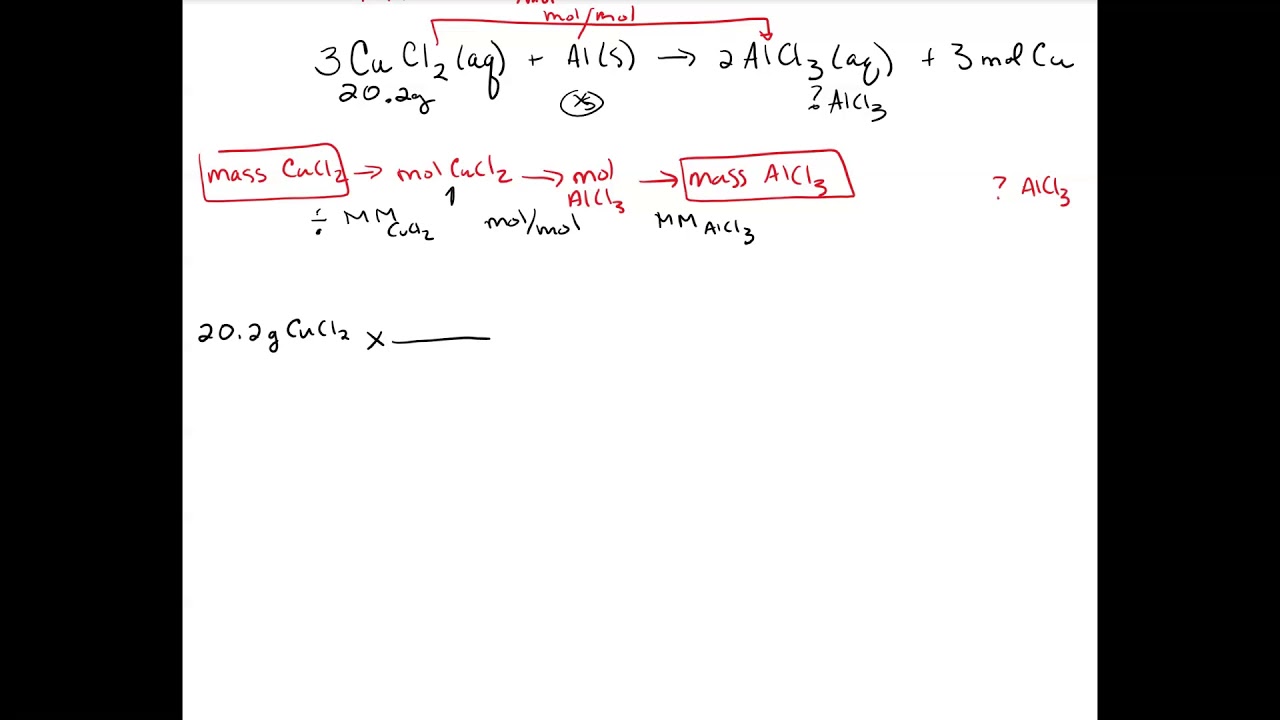 mol/mol
3CuCl₂(aq) + Al(s) → 2AlCl₃(aq) + 3 mol Cu
20.2g xs ? AlCl₃
mass CuCl₂ → mol CuCl₂ → mol AlCl₃ → mass AlCl₃ ? AlCl₃
÷ MM CuCl₂ mol/mol MM AlCl₃
20.2g CuCl₂ x